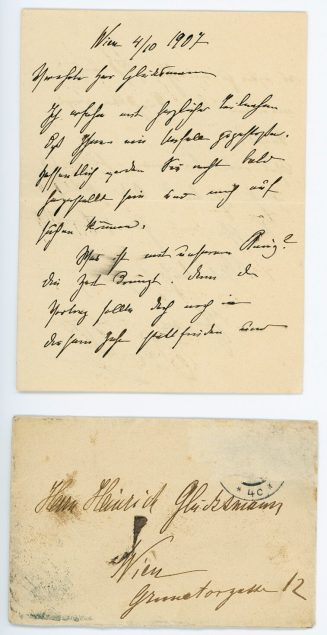 Wien 4/10 1907
Verehrter Herr Glücksmann
Ich erfahre mit herzlicher Teilnahme
daß Ihnen ein Unfall zugestoßen.
Hoffentlich werden Sie recht bald
hergestellt sein und mich auf
suchen können.
Was ist mit unserem
die Zeit drängt. denn der
Vortrag sollte doch noch in
diesem Jahr stattfinden und
* 4c *
Herrn Heinrich Glücksmann
Wien
12